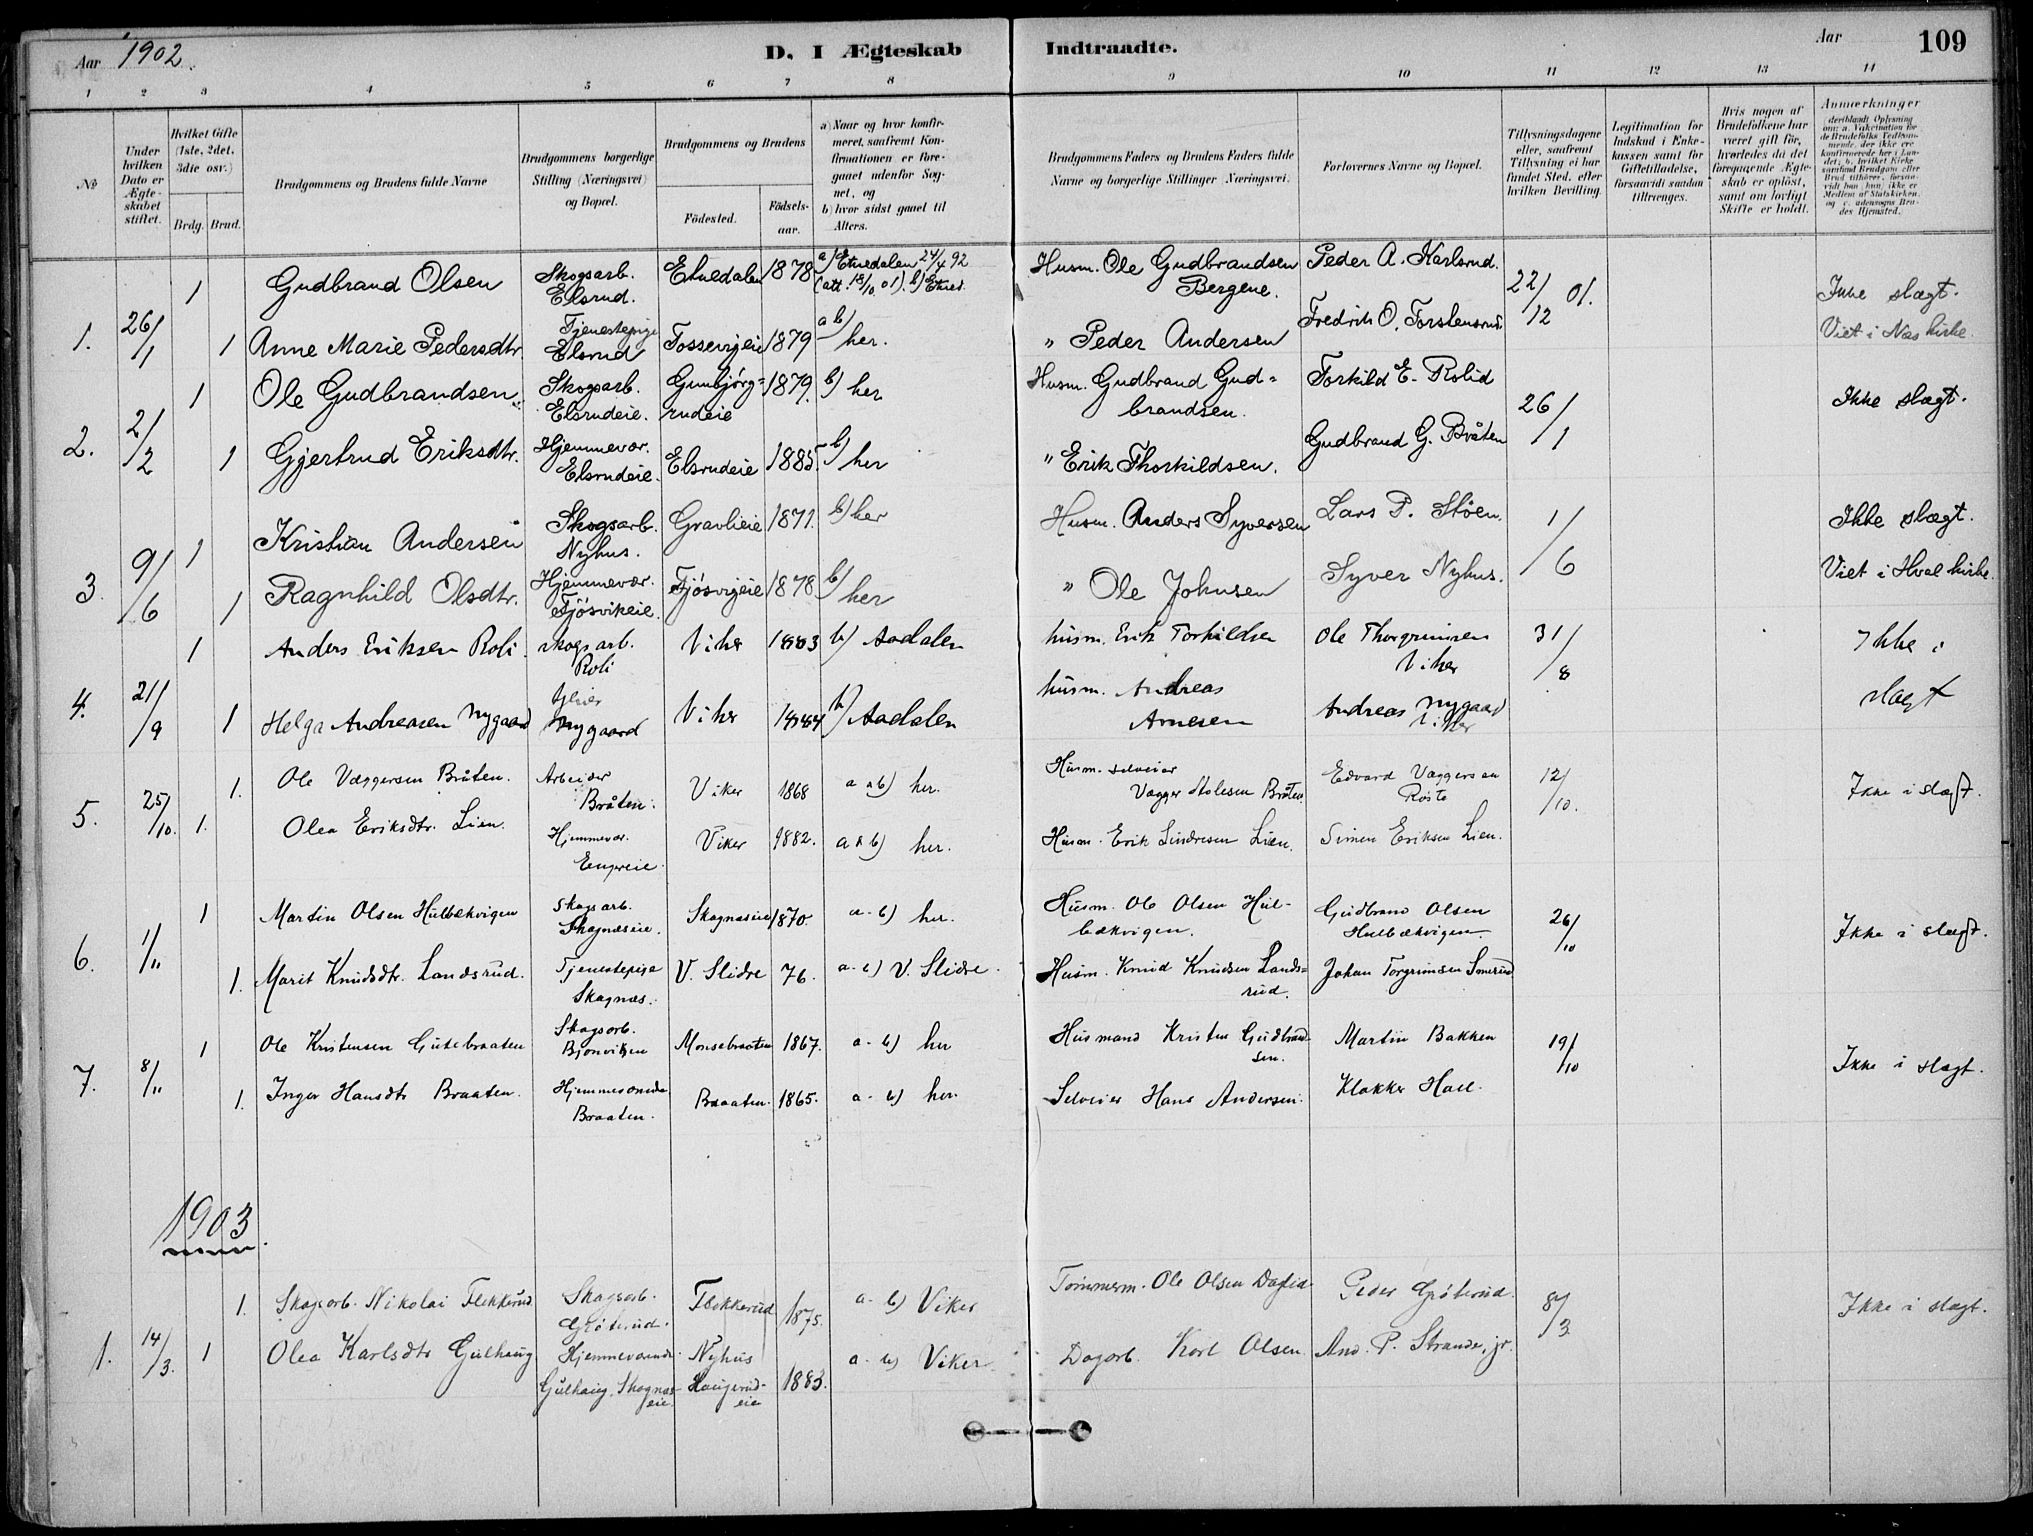 Aar 1902.
D. I Ægteskab Indtraadte.
Aar
109
1 2 3 4 5 6 7 8 9 10 11 12 13 14
No
Under hvilken Dato er Ægteskabet stiftet.
Hvilket Gifte (1ste, 2det, 3die osv.)
Brdg. Brud.
Brudgommens og Brudens fulde Navne
Brudgommens borgerlige Stilling (Næringsvei) og Bopæl.
Brudgommens og Brudens
Fødested.
Fødselsaar.
a) Naar og hvor konfirmeret, saafremt Konfirmationen er foregaaet udenfor Sognet, og
b) hvor sidst gaaet til Alters.
Brudgommens Faders og Brudens Faders fulde Navne og borgerlige Stillinger (Næringsvei).
Forlovernes Navne og Bopæl.
Tillysningsdagene eller, saafremt Tillysning ei har fundet Sted, efter hvilken Bevilling.
Legitimation for Indskud i Enkekassen samt for Giftetilladelse, forsaavidt saadan tiltrænges.
Hvis nogen af Brudefolkene har været gift før, hvorledes da det foregaaende Ægteskab er opløst, samt om lovligt Skifte er holdt.
Anmærkninger
deriblandt Oplysning om: a. Vakcination for de Brudefolks Vedkommende, der ikke ere konfirmerede her i Landet; b. hvilket Kirkesamfund Brudgom eller Brud tilhører, forsaavidt han (hun) ikke er Medlem af Statskirken, og c. udensogns Brudes Hjemsted.
1. 26/1 1 Gudbrand Olsen Skogsarb. Elsrud. Etnedalen 1878 a) Etnedalen 24/4 92 (att. 18/10 01). b) Etned. Husm. Ole Gudbrandsen Bergene. Peder A. Karlsrud. 22/12 01. Ikke slægt.
1 Anne Marie Pedersdtr. Tjenestepige Elsrud Fossevigeie 1879 a b) her. " Peder Andersen Fredrik O. Torstensrud. Viet i Næs kirke.
2. 2/2 1 Ole Gudbrandsen. Skogsarb. Elsrudeie. Gunbjørgrudeie 1879. b) her Husm. Gudbrand Gudbrandsen. Torkild E. Rolid 26/1 Ikke slægt.
1 Gjertrud Eriksdtr. Hjemmevær. Elsrudeie. Elsrudeie 1885. b) her " Erik Thorkildsen. Gudbrand G. Bråten
3. 9/6 1 Kristian Andersen Skogsarb. Nyhus. Gravlieie 1871. b) her Husm. Anders Syversen Lars P. Støen. 1/6 Ikke slægt.
1 Ragnhild Olsdtr. Hjemmevær. Fjøsvikeie. Fjøsvigeie 1878 b) her " Ole Johnsen Syver Nyhus. Viet i Hval kirke.
4. 21/9 1 Anders Eriksen Roli skogsarb. Roli Viker 1883 b) Aadalen husm. Erik Torkildsen Ole Thorgrimsen Viker 31/8 Ikke i slægt
1 Helga Andreasen Nygaard Nygaard Viker 1884 b) Aadalen husm. Andreas Arnesen Andreas Nygaard Viker
5. 25/10. 1. Ole Væggersen Bråten. Arbeider Bråten. Viker 1868 a & b) her. Husm. selveier Vægger Bråten Edvard Væggersen 12/10. Ikke i slægt.
1. Olea Eriksdtr. Lien. Hjemmevær. Viker 1882. a & b) her. Husm. Erik Sindresen Lien. Simen Eriksen Lien.
6. 1/11 1 Martin Olsen Hulbækvigen Skogsarb. Skagnæseie. Skagnæseie 1870. a - b) her. Husm. Ole Olsen Hulbækvigen. Gudbrand Olsen Hulbækvigen. 26/10 Ikke i slægt.
1. Marit Knudsdtr. Landsrud. Tjenestepige Skagnæs. V. Slidre 76. a - b) V. Slidre. Husm. Knud Knudsen Landsrud. Johan Torgrimsen
7. 8/11 1 Ole Kristensen Gutebraaten Skogsarb. Bjonviken Monsebraaten 1867. a - b) her Husmand Kristen Gudbrandsen. Martin Bakken 19/10 Ikke i slægt.
1. Inger Hansdtr Braaten. Hjemmeværende Braaten. Braaten. 1865. a - b) her. Selveier Hans Andersen. Klokker Hall.
1903.
1. 14/3. 1. Skogsarb. Nikolai Flekkerud Skogsarb. Grøterud. Flekkerud 1875. a - b) Viker Tømmerm. Ole Olsen Peder Grøterud. 8/3 Ikke i slægt.
1 Olea Karlsdtr Gulhaug Hjemmeværende Gulhaug, Skagnæseie. Nyhus Haugerudeie 1883. a - b) Viker. Dagarb. Karl Olsen. And. P. Strande, jr.